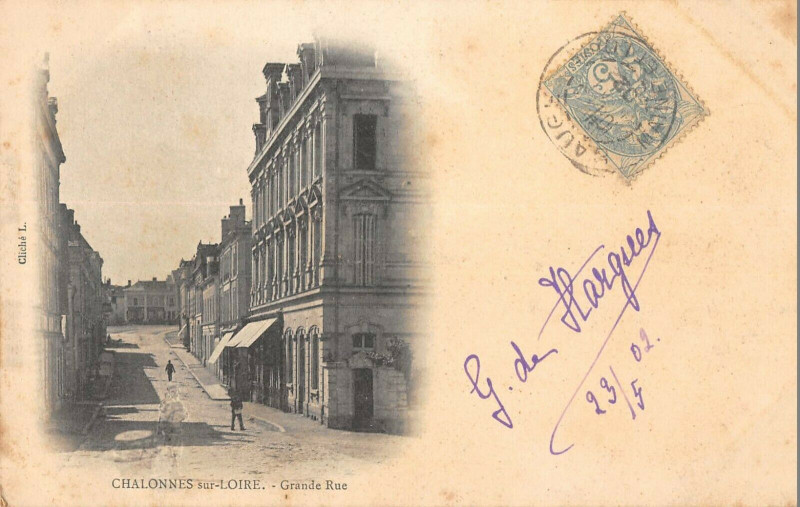 Cliché L.
5
G. de Hargues
23/5 02.
CHALONNES sur-LOIRE. - Grande Rue